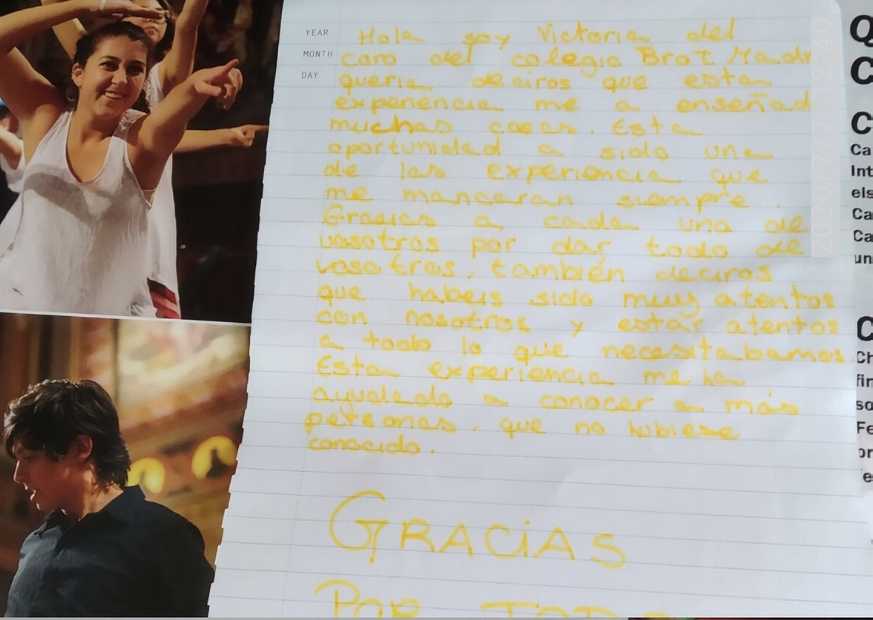 YEAR
MONTH
DAY
Hola soy Victoria del
caro del colegio Brot Madr
queria deciros que esta
experiencia me a enseñad
muchas cosas. Esta
oportunidad a sido una
de las experiencia que
me marcaran siempre.
Gracias a cada una de
vosotros por dar todo de
vosotros, también deciros
que habeis sido muy atentos
con nosotros y estar atentos
a todo lo que necesitabamos
Esta experiencia me ha
ayudado a conocer a más
personas. que no hubiese
conocido.
GRACiAS
POR TODO
Q
C
C
Ca
Int
els
Ca
Ca
un
C
Ch
fin
so
Fe
or